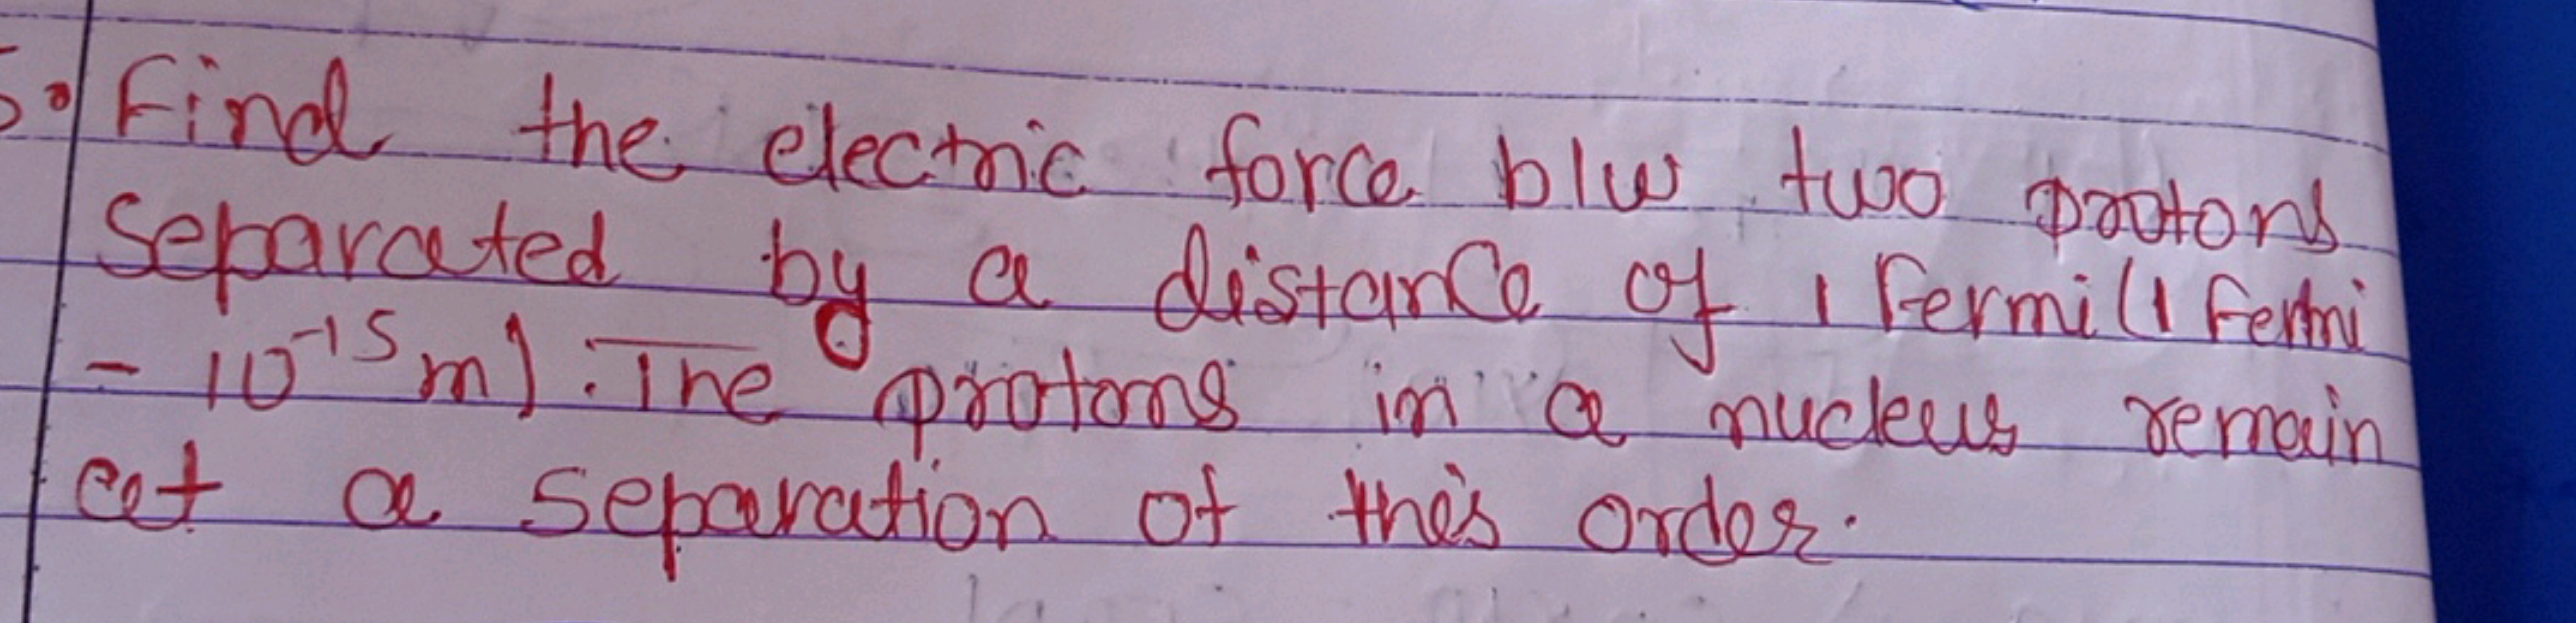 5. Find the electric force b/w two protons
separated by a distance of 1 fermi (1 fermi
- 10⁻¹⁵ m). The protons in a nucleus remain
at a separation of this order.